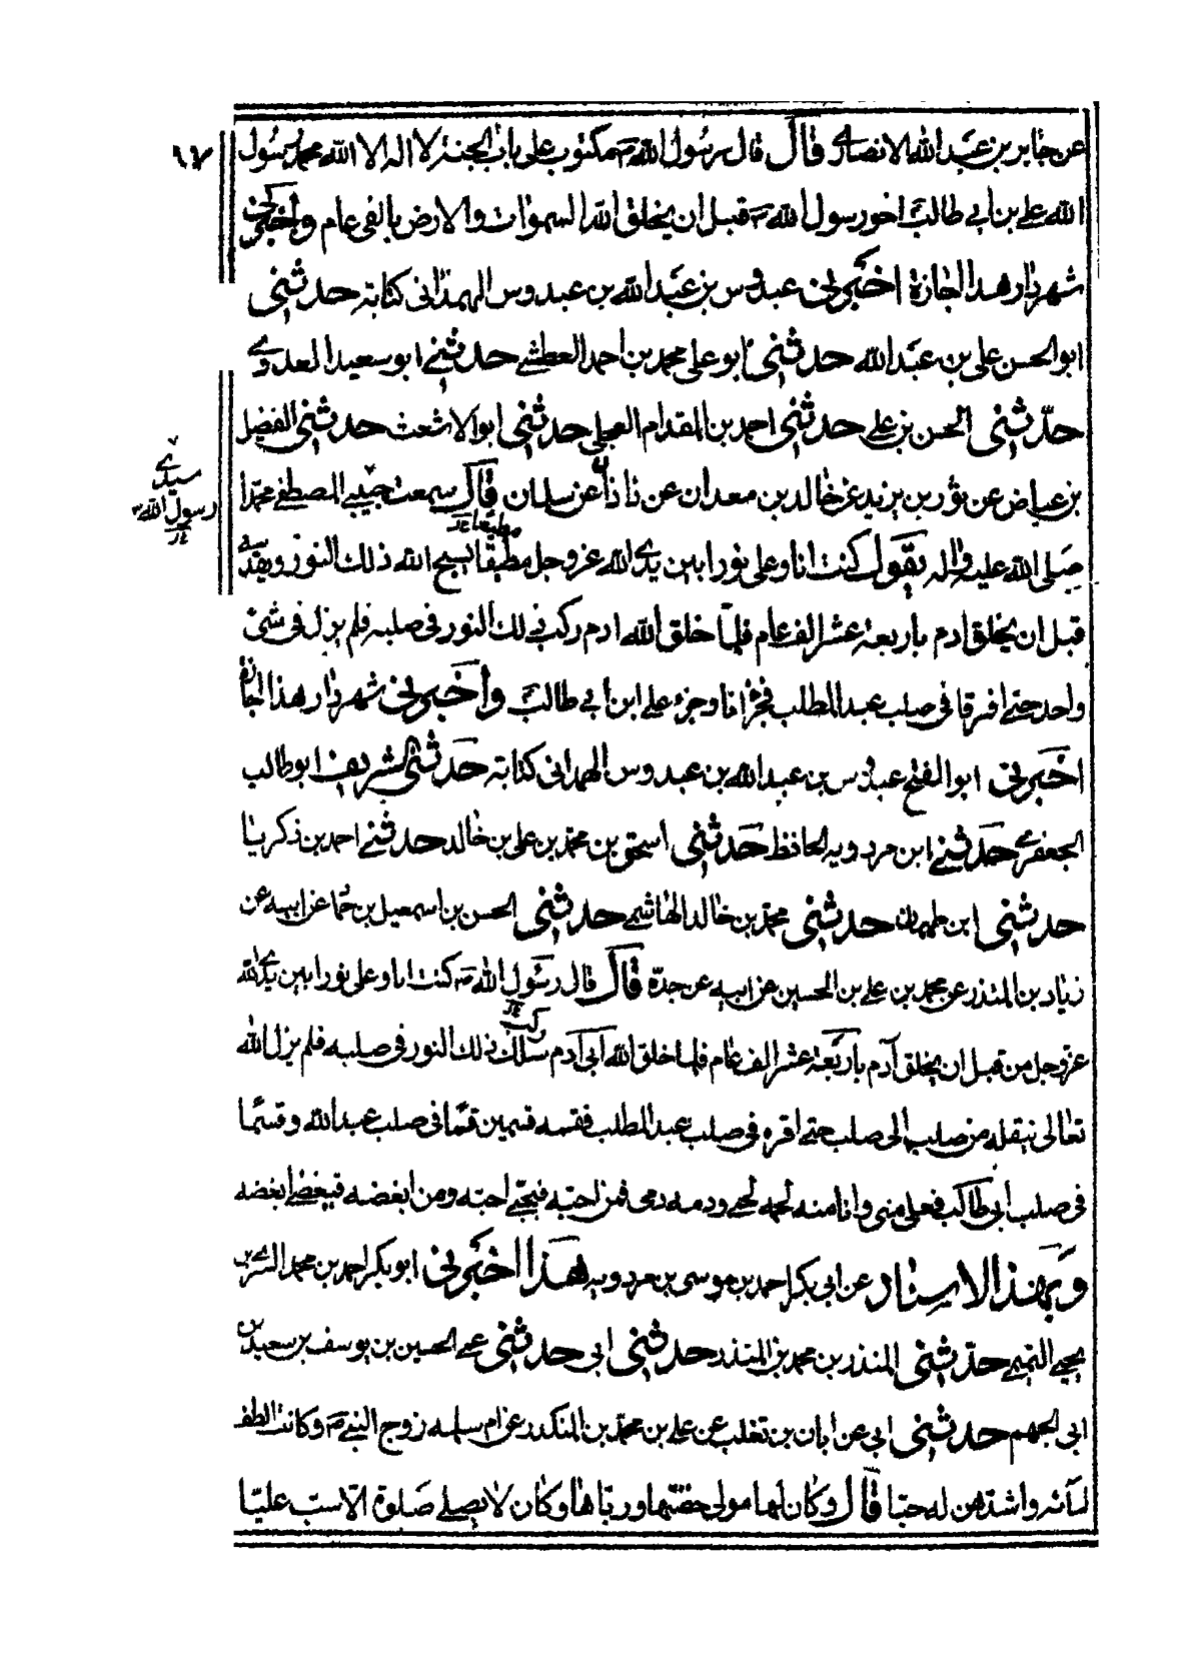 عن جابر بن عبد الله الانصاری قال قال رسول الله ص مکتوب علی باب الجنة لا اله الا الله محمد رسول
الله علی بن ابی طالب اخو رسول الله ص قبل ان یخلق الله السموات والارض بالفی عام واخبرنی
شهردار هذا اجازة اخبرنی عبدوس بن عبد الله بن عبدوس الهمدانی کتابة حدثنی
ابو الحسن علی بن عبد الله حدثنی ابو علی محمد بن احمد العطشی حدثنی ابو سعید العدوی
حدثنی الحسن بن علی حدثنی احمد بن المقدام العجلی حدثنی ابو الاشعث حدثنی الفضیل
بن عیاض عن ثور بن یزید عن خالد بن معدان عن زاذان عن سلمان قال سمعت حبیبی المصطفی محمدا
سیدی
رسول الله ص
صلی الله علیه واله یقول کنت انا وعلی نورا بین یدی الله عز وجل مطبقا یسبح الله ذلک النور ویقدسه
قبل ان یخلق ادم باربعة عشر الف عام فلما خلق الله ادم رکب ذلک النور فی صلبه فلم یزل فی شئ
واحد حتی افترقا فی صلب عبد المطلب فجزء انا وجزء علی ابن ابی طالب واخبرنی شهردار هذا اجازة
اخبرنی ابو الفتح عبدوس بن عبد الله بن عبدوس الهمدانی کتابة حدثنی الشریف ابو طالب
الجعفری حدثنی ابن مردویه الحافظ حدثنی اسحق بن محمد بن علی بن خالد حدثنی احمد بن زکریا
حدثنی ابن طهمان حدثنی محمد بن خالد الهاشمی حدثنی الحسن بن اسمعیل بن حماد عن ابیه عن
زیاد بن المنذر عن محمد بن علی بن الحسین عن ابیه عن جده قال قال رسول الله ص کنت انا وعلی نورا بین یدی الله
عز وجل من قبل ان یخلق آدم باربعة عشر الف عام فلما خلق الله ابی آدم سلک ذلک النور فی صلبه فلم یزل الله
تعالی ینقله من صلب الی صلب حتی اقره فی صلب عبد المطلب فقسمه قسمین قسما فی صلب عبد الله وقسما
فی صلب ابی طالب فعلی منی وانا منه لحمه لحمی ودمه دمی فمن احبه فبحبی احبه ومن ابغضه فببغضی ابغضه
وبهذا الاسناد عن ابی بکر احمد بن موسی بن مردویه هذا اخبرنی ابو بکر احمد بن محمد السری بن
یحیی التمیمی حدثنی المنذر بن محمد بن المنذر حدثنی ابی حدثنی عمی الحسین بن یوسف بن سعید بن
ابی الجهم حدثنی ابی عن ابان بن تغلب عن علی بن محمد بن المنکدر عن ام سلمه زوج النبی ص وکانت الطف
نسائه واشدهن له حبا قال وکان لها مولی حضنها ورباها وکان لا یصلی صلوة الا سب علیا